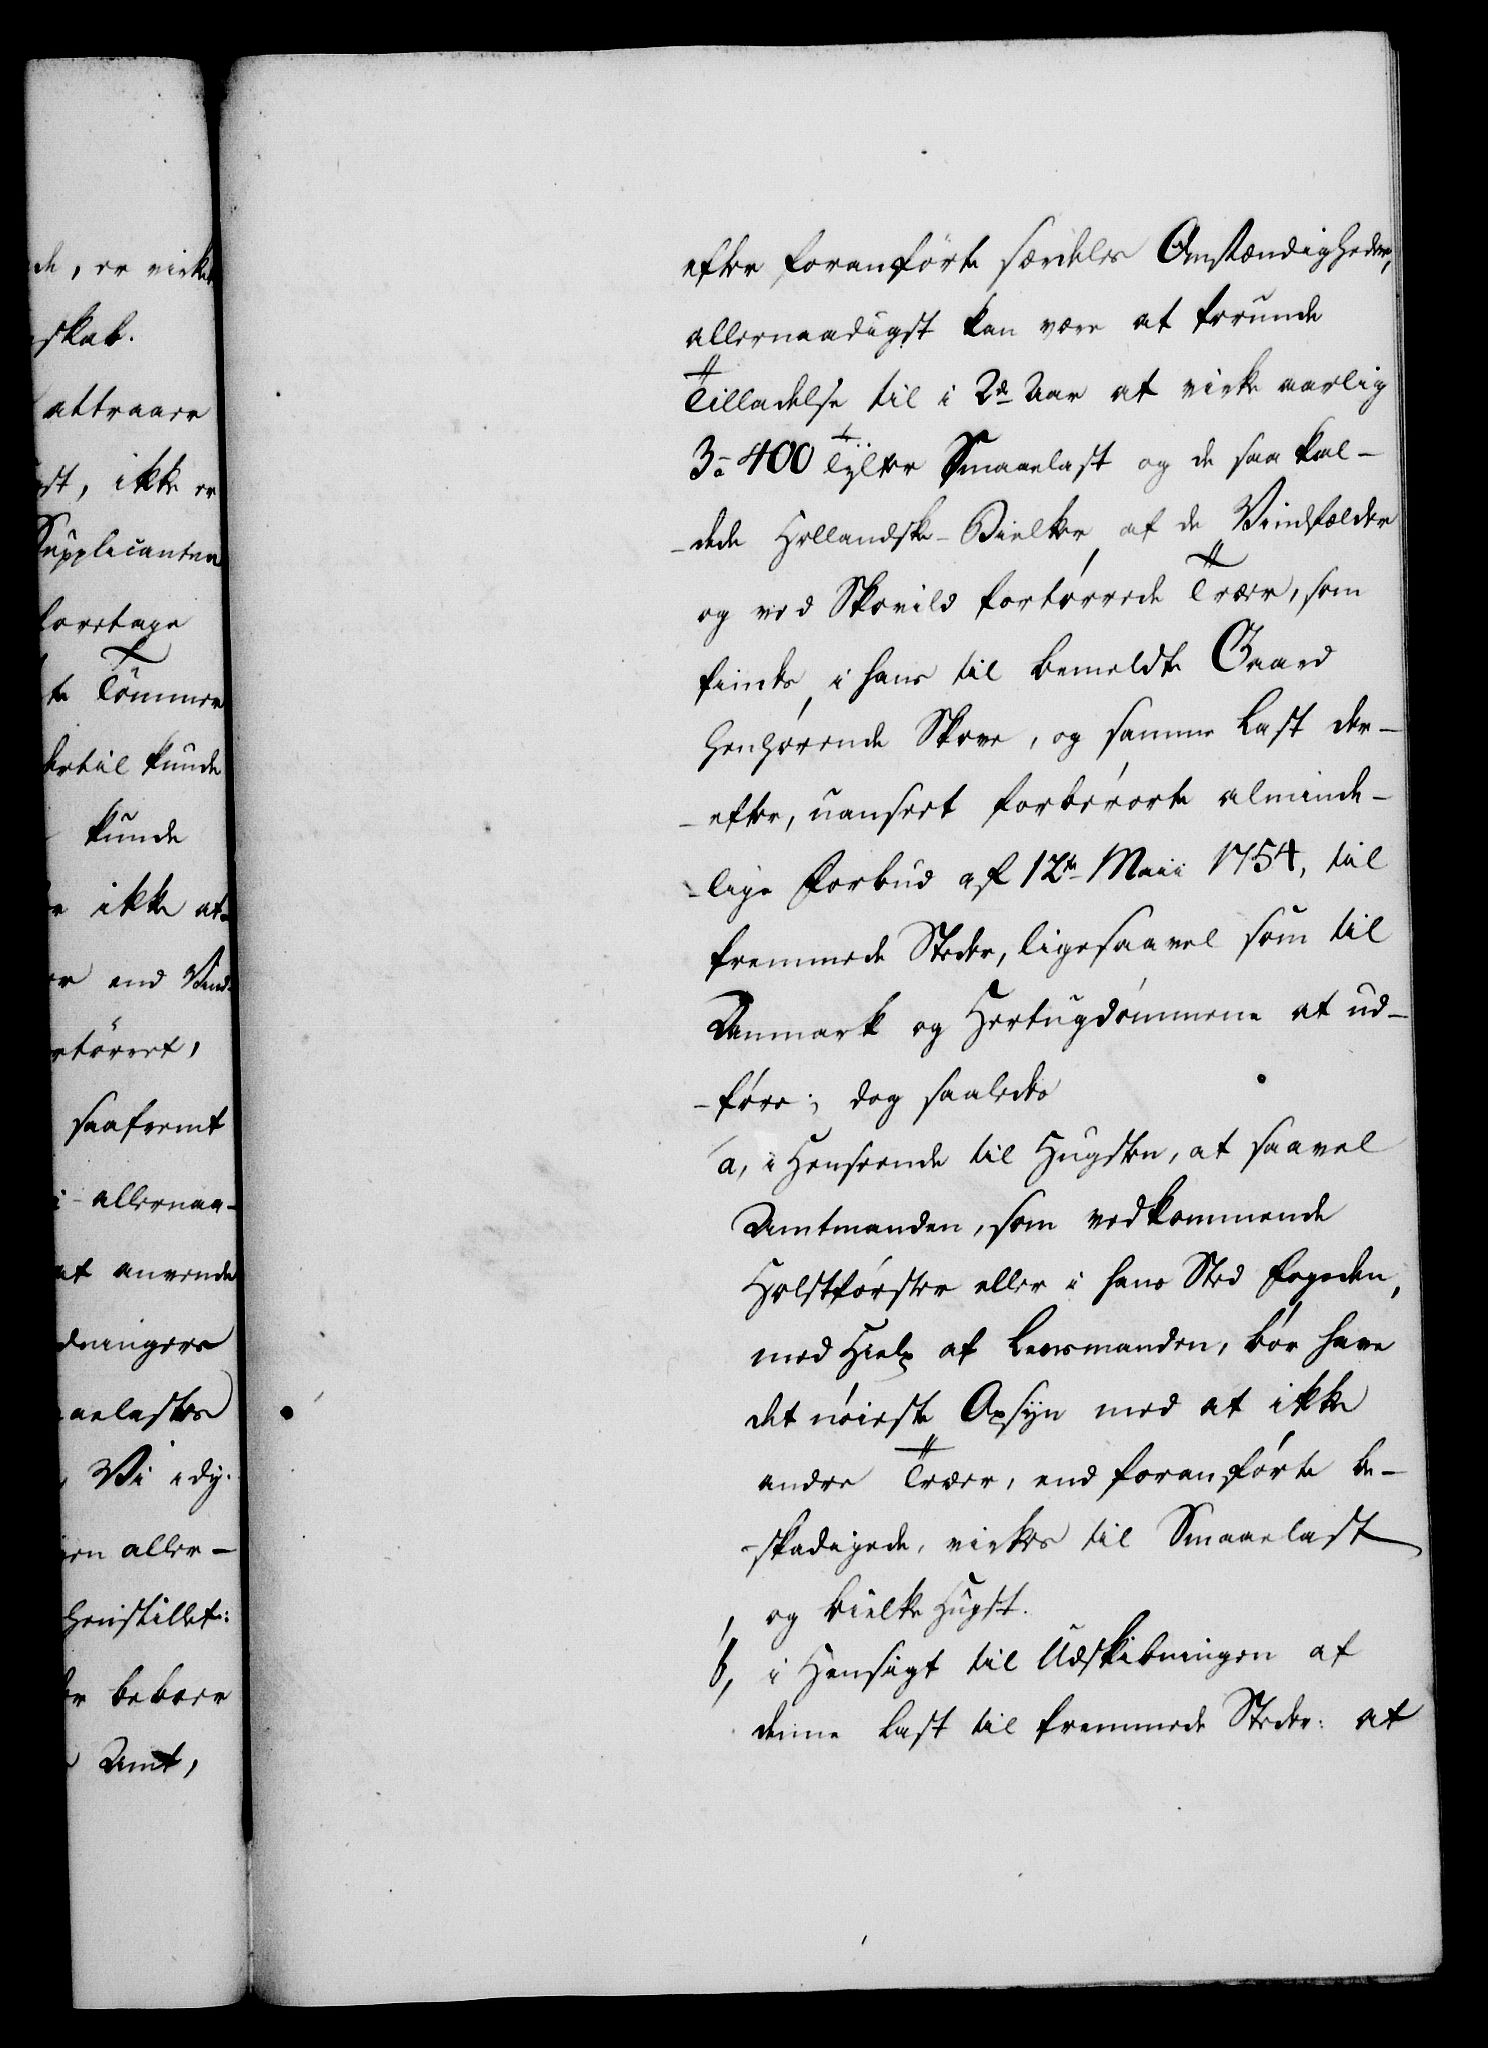 de, er virket
skab.
attraaer
st, ikke er
Supplicanten
foretage
te Tömmer
hertil kunde
kunde
ikke at-
er end Vind-
rtörret,
saafremt
i allernaa-
at anvende
dningers
aelastes
Vi i dy-
en aller-
henstillet:
beboer
Amt,
efter foranförte særdeles Omstændigheder,
allernaadigst kan være at forunde
Tilladelse til i 2de Aar at virke aarlig
3 à 400 Tylter Smaaelast og de saa kal-
-dede Hollandske-Bielker af de Vindfælder
og ved Skovild fortörrede Træer, som
findes i hans til bemeldte Gaard
henhörende Skove, og samme Last der-
-efter, uanseet forberörte alminde-
-lige Forbud af 12te Maii 1754, til
fremmede Steder, ligesaavel som til
Danmark og Hertugdömmene at ud-
-före; dog saaledes
a, i Henseende til Hugsten, at saavel
Amtmanden, som vedkommende
Holtförster eller i hans Sted Fogeden,
med Hielp af Lensmanden, bör have
det nöieste Opsyn med at ikke
andre Træer, end foranförte be-
-skadigede, virkes til Smaaelast
og Bielke Hugst.
b, i Hensigt til Udskibningen af
denne Last til fremmede Steder: at